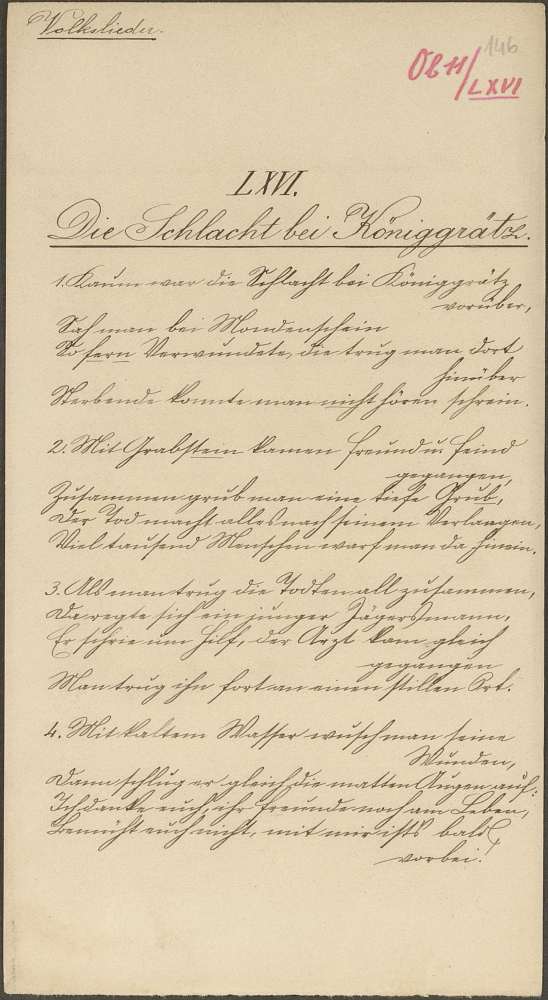 Volkslieder.
146
Ob 11/
LXVI
LXVI.
Die Schlacht bei Königgrätz.
1. Kaum war die Schlacht bei Königgrätz
vorüber,
Sah man bei Mondenschein
So fern Verwundete, die trug man dort
hinüber
Sterbende konnte man nicht hören schrein.
2. Mit Grabstein kamen Freund u. Feind
gegangen,
Zusammen grub man eine tiefe Grub,
Der Tod macht alles nach seinem Verlangen,
Viel tausend Menschen warf man da hinein.
3. Als man trug die Todten all zusammen,
Da regte sich ein junger Jägersmann,
Er schrie um Hilf, der Arzt kam gleich
gegangen
Man trug ihn fort an einen stillen Ort.
4. Mit kaltem Wasser wusch man seine
Wunden,
Dann schlug er gleich die matten Augen auf:
Ich danke euch, ihr Freunde noch am Leben,
Bemüht euch nicht, mit mir ists bald
vorbei!